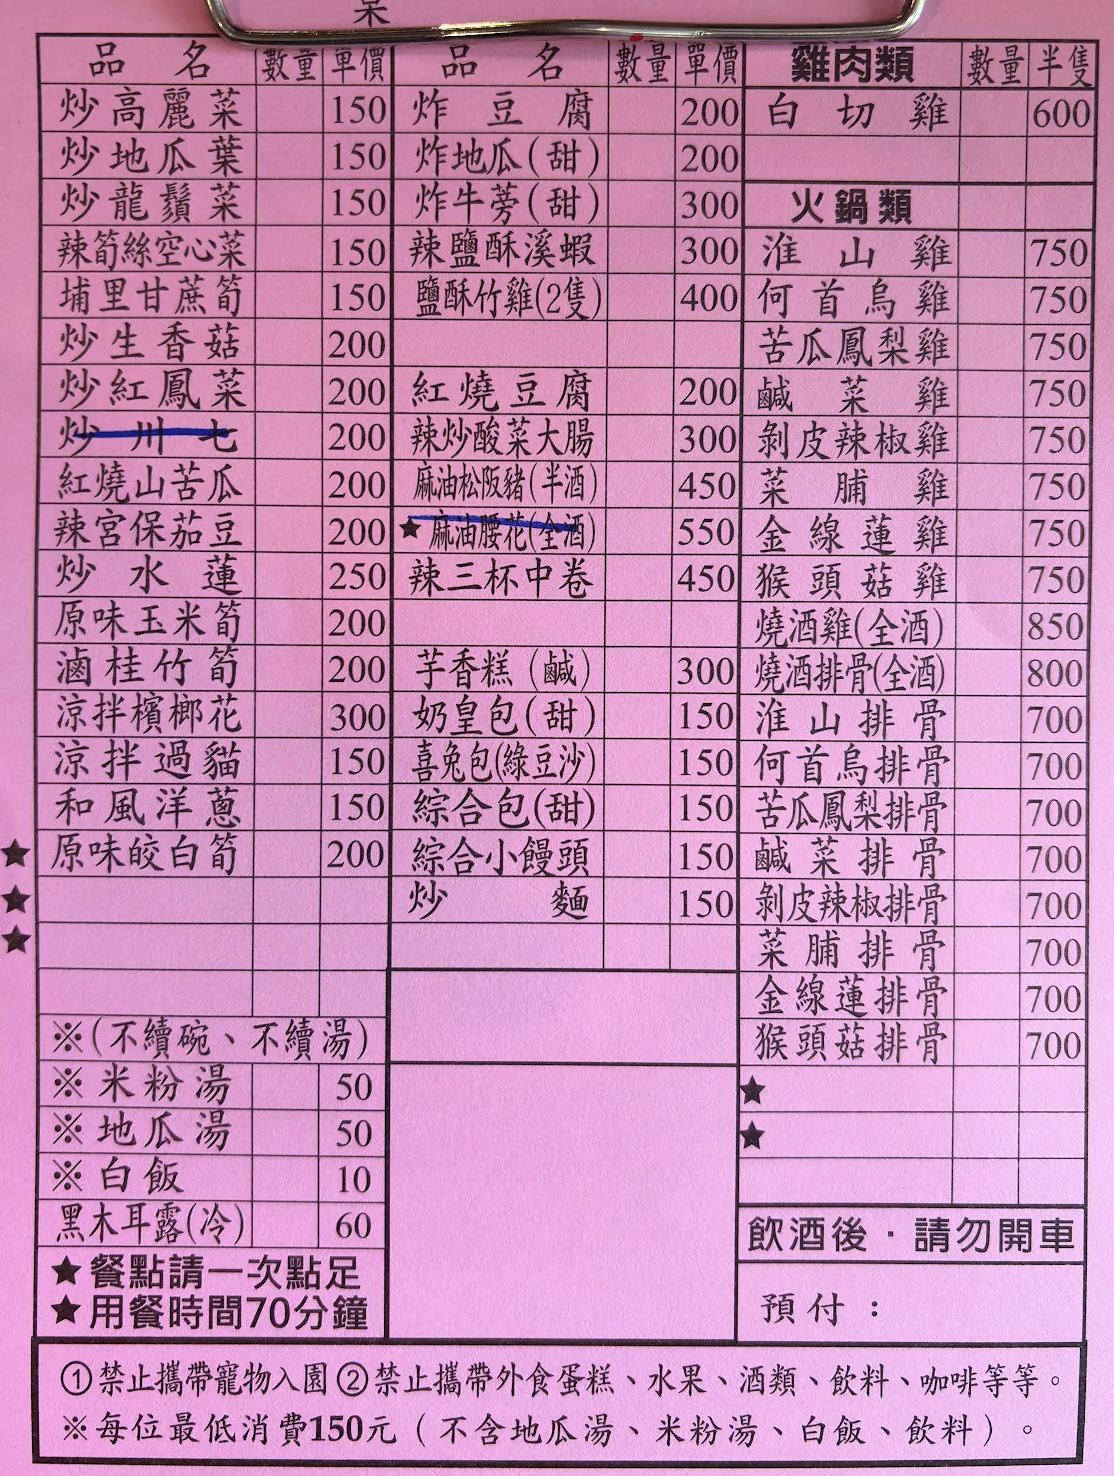 品名 數量 單價
炒高麗菜 150
炒地瓜葉 150
炒龍鬚菜 150
辣筍絲空心菜 150
埔里甘蔗筍 150
炒生香菇 200
炒紅鳳菜 200
炒川七 200
紅燒山苦瓜 200
辣宮保茄豆 200
炒水蓮 250
原味玉米筍 200
滷桂竹筍 200
涼拌檳榔花 300
涼拌過貓 150
和風洋蔥 150
★原味皎白筍 200
★
★
※(不續碗、不續湯)
※米粉湯 50
※地瓜湯 50
※白飯 10
黑木耳露(冷) 60
★餐點請一次點足
★用餐時間70分鐘
品名 數量 單價
炸豆腐 200
炸地瓜(甜) 200
炸牛蒡(甜) 300
辣鹽酥溪蝦 300
鹽酥竹雞(2隻) 400
紅燒豆腐 200
辣炒酸菜大腸 300
麻油松阪豬(半酒) 450
★麻油腰花(全酒) 550
辣三杯中卷 450
芋香糕(鹹) 300
奶皇包(甜) 150
喜兔包(綠豆沙) 150
綜合包(甜) 150
綜合小饅頭 150
炒麵 150
雞肉類 數量 半隻
白切雞 600
火鍋類
淮山雞 750
何首烏雞 750
苦瓜鳳梨雞 750
鹹菜雞 750
剝皮辣椒雞 750
菜脯雞 750
金線蓮雞 750
猴頭菇雞 750
燒酒雞(全酒) 850
燒酒排骨(全酒) 800
淮山排骨 700
何首烏排骨 700
苦瓜鳳梨排骨 700
鹹菜排骨 700
剝皮辣椒排骨 700
菜脯排骨 700
金線蓮排骨 700
猴頭菇排骨 700
★
★
飲酒後·請勿開車
預付：
①禁止攜帶寵物入園②禁止攜帶外食蛋糕、水果、酒類、飲料、咖啡等等。
※每位最低消費150元（不含地瓜湯、米粉湯、白飯、飲料）。